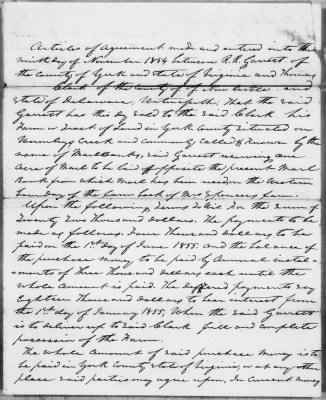 Articles of Agreement made and entered into the
ninth day of November 1854 between R. R. Garrett of
the County of York and State of Virginia and Thomas
Clark of the County of New Castle and
State of Delaware, Witnesseth: That the said
Garrett has this day sold to the said Clark his
Farm or Tract of Land in York County situated on
Creek and commonly called & known by the
name of Marlbanks, said Garrett reserving one
Acre of Marl to be laid off opposite the present Marl
Bank from which Marl has been used on the Western
boundary of the farm back of Mr Spencers farm.
Upon the following Terms to Wit. For the sum of
Twenty two Thousand dollars. The payments to be
made as follows. Four Thousand dollars to be
paid on the 1st day of June 1855. and the balance of
the purchase money to be paid by Annual instal-
ments of Three Thousand dollars each until the
whole amount is paid. The deferred payments say
Eighteen Thousand dollars to bear interest from
the 1st day of January 1855, When the said Garrett
is to deliver up to said Clark full and complete
possession of the Farm.
The whole Amount of said purchase money is to
be paid in York County State of Virginia, or at any other
place said parties may agree upon, in Current money